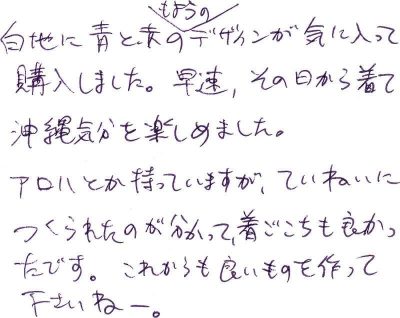 もようの
白地に青と赤のデザインが気に入って
購入しました。早速、その日から着て
沖縄気分を楽しめました。
アロハとか持っていますが、ていねいに
つくられたのが分かって、着ごこちも良かっ
たです。これからも良いものを作って
下さいねー。